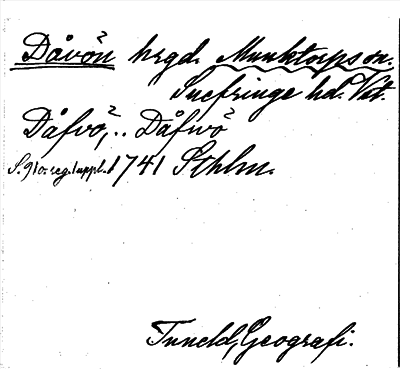 Dåvön hrgd. Munktorps sn.
Snefringe hd. Vstm.
Dåfvö, .. Dåfwö
S. 910. reg. suppl. 1741 Sthlm.
Tuneld, Geografi.